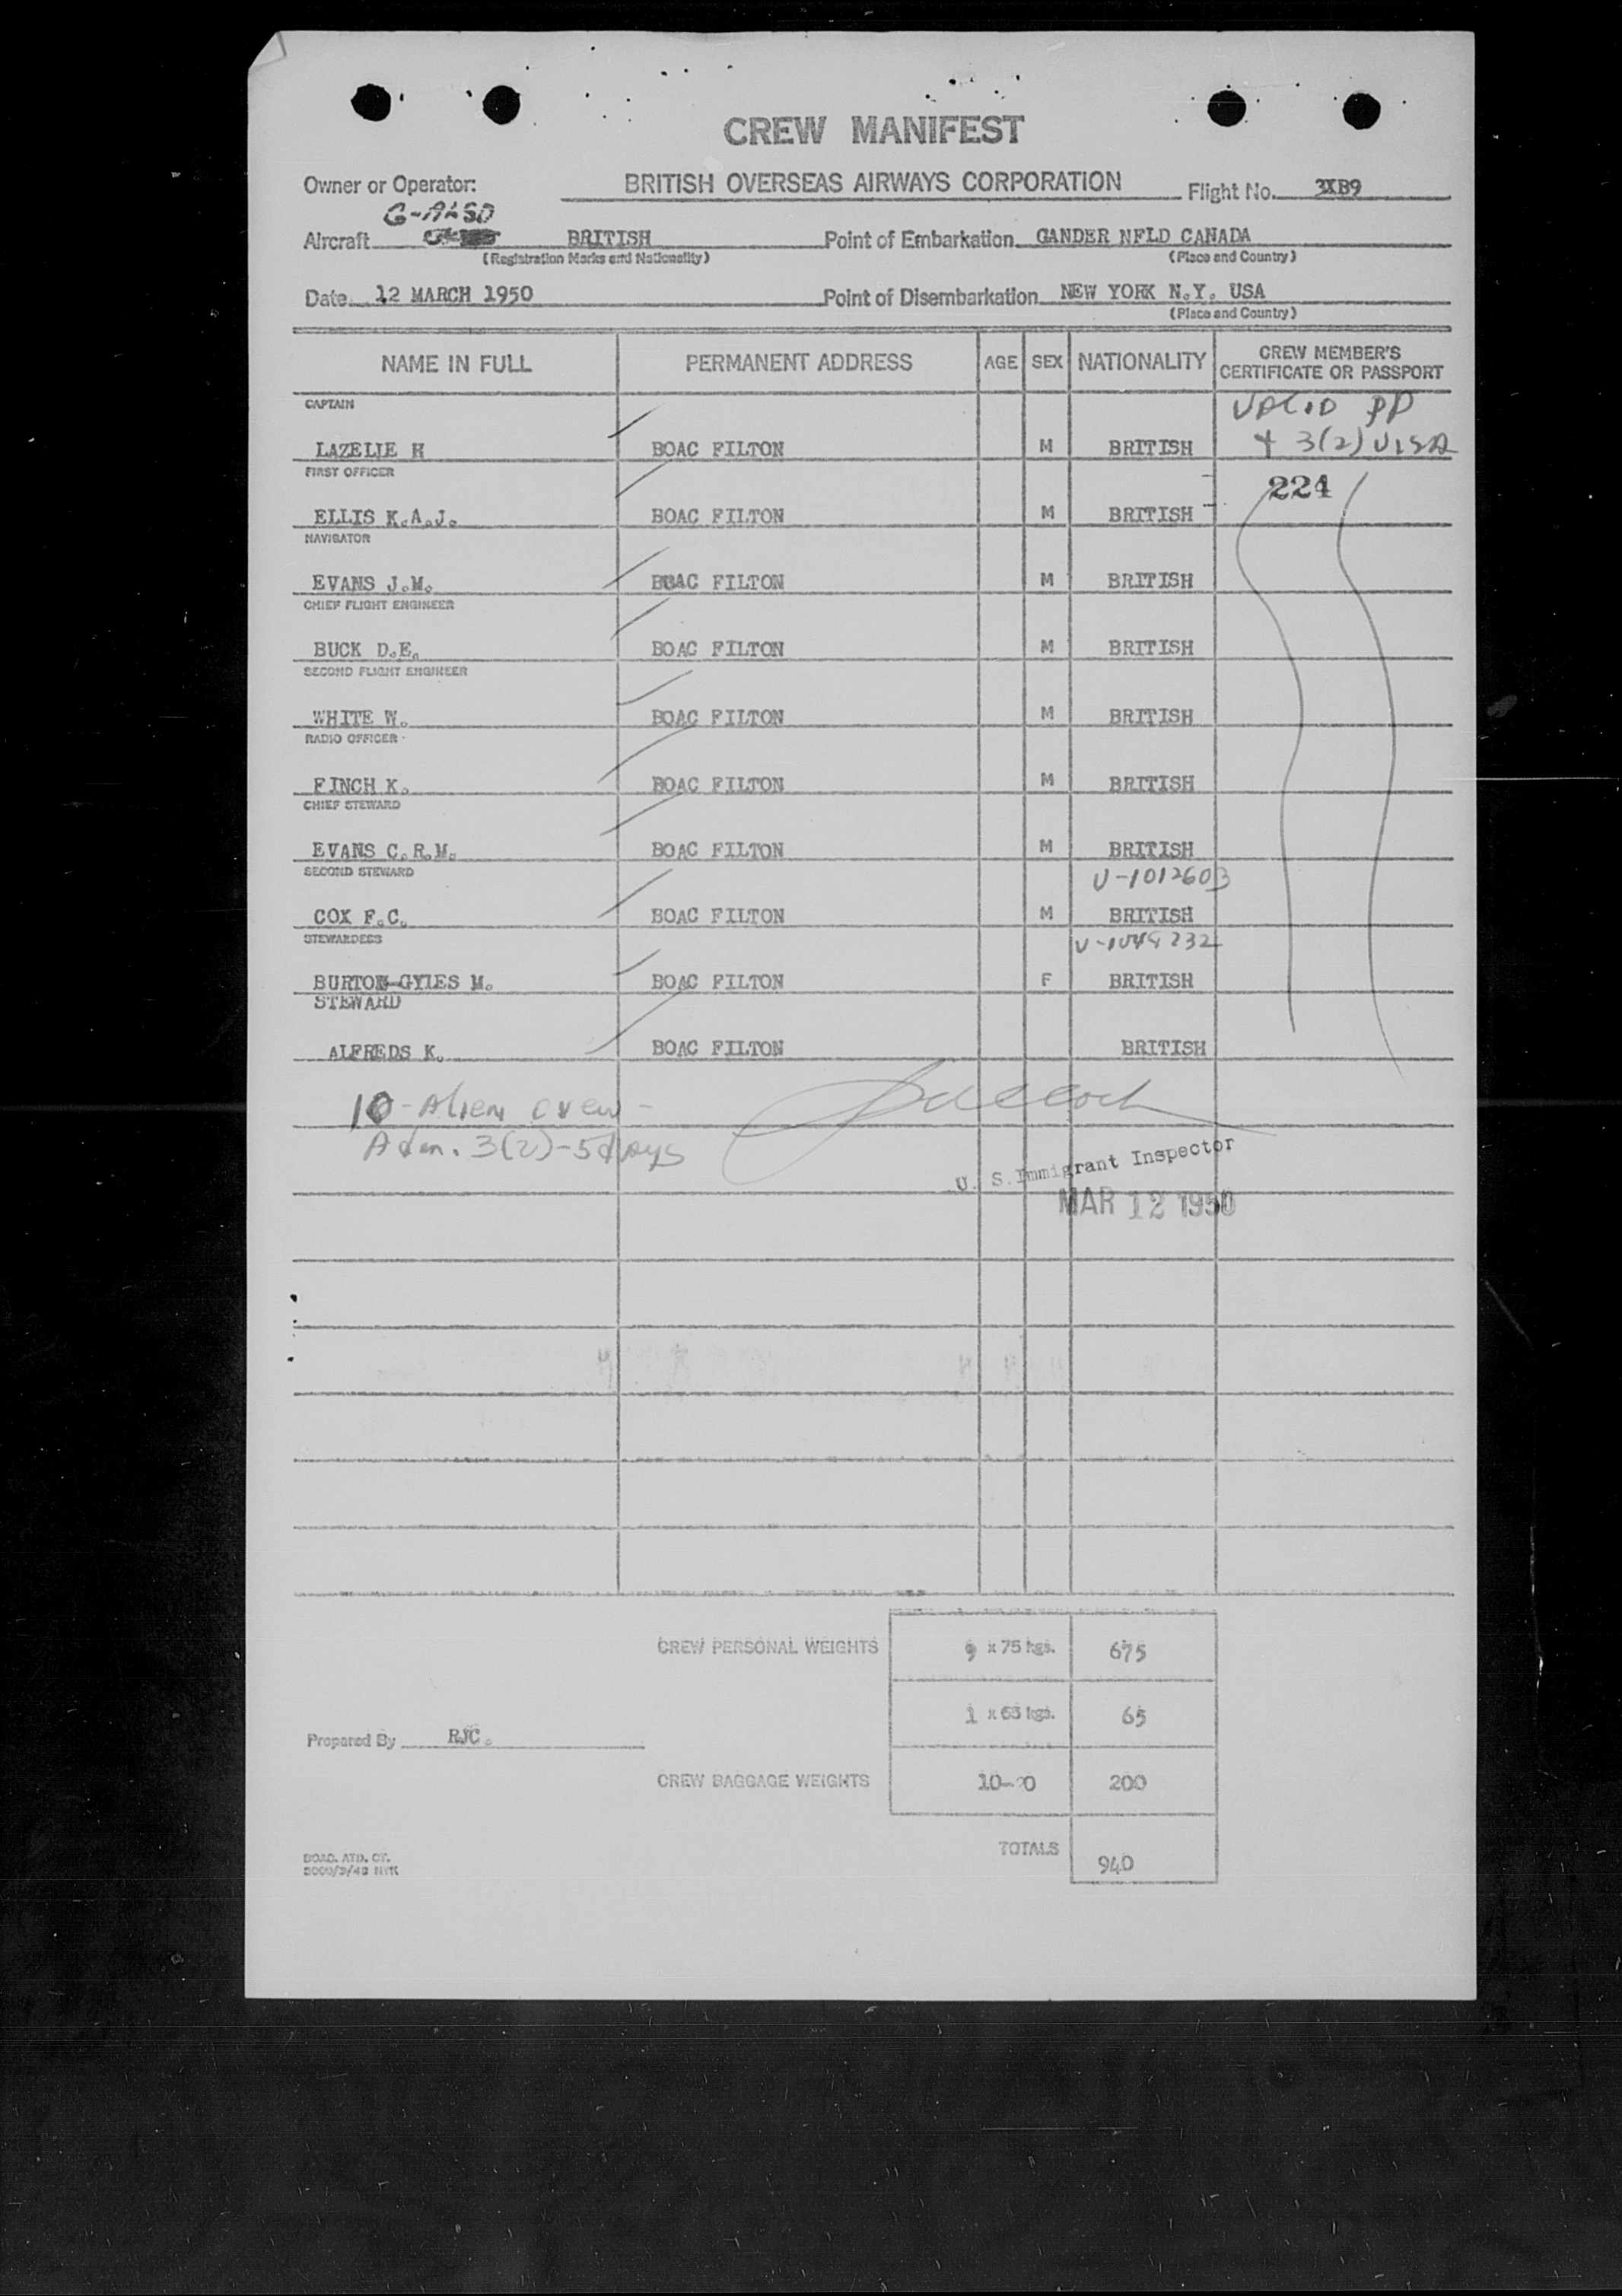 CREW MANIFEST
Owner or Operator: BRITISH OVERSEAS AIRWAYS CORPORATION Flight No. 3XB9
G-ALSD
Aircraft BRITISH Point of Embarkation GANDER NFLD CANADA
(Registration Marks and Nationality) (Place and Country)
Date 12 MARCH 1950 Point of Disembarkation NEW YORK N.Y. USA
(Place and Country)
NAME IN FULL PERMANENT ADDRESS AGE SEX NATIONALITY CREW MEMBER'S CERTIFICATE OR PASSPORT
CAPTAIN VALID PP
LAZELIE H BOAC FILTON M BRITISH + 3(2) VISA
FIRST OFFICER 224
ELLIS K.A.J. BOAC FILTON M BRITISH
NAVIGATOR
EVANS J.M. BOAC FILTON M BRITISH
CHIEF FLIGHT ENGINEER
BUCK D.E. BOAC FILTON M BRITISH
SECOND FLIGHT ENGINEER
WHITE W. BOAC FILTON M BRITISH
RADIO OFFICER
FINCH K. BOAC FILTON M BRITISH
CHIEF STEWARD
EVANS C.R.M. BOAC FILTON M BRITISH
SECOND STEWARD V-1012603
COX F.C. BOAC FILTON M BRITISH
STEWARDESS
BURTON-GYLES M. BOAC FILTON F BRITISH
STEWARD
ALFREDS K. BOAC FILTON BRITISH
10 - Alien crew -
Adm. 3(2)-5 days
U. S. Immigrant Inspector
MAR 12 1950
CREW PERSONAL WEIGHTS 9 x 75 kgs. 675
1 x 65 kgs. 65
Prepared By RJC.
CREW BAGGAGE WEIGHTS 10-20 200
TOTALS 940